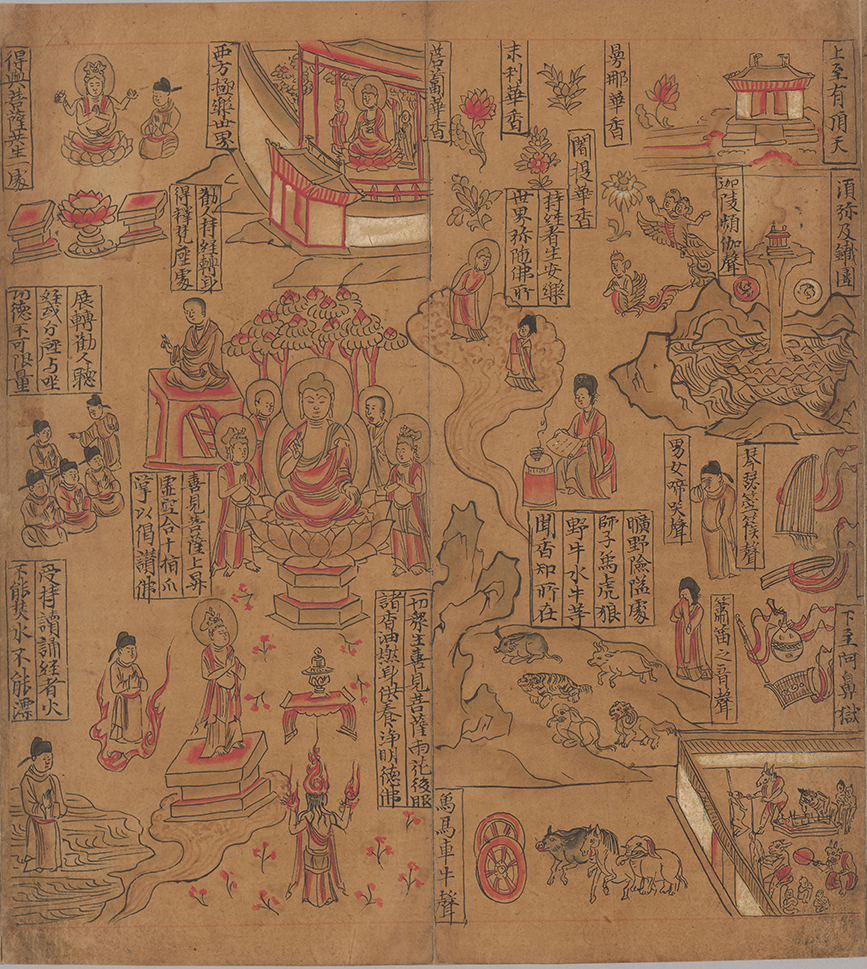 上至有頂天
須弥及鐵圍
曼那華香
末利華香
闍提華香
苫蔔華香
迦陵頻伽聲
持経者生安樂
世界弥陁佛所
琴瑟箜篌聲
男女啼哭聲
簫笛之音聲
下至阿鼻獄
曠野險隘處
師子象虎狼
野牛水牛等
聞香知所在
象馬車牛聲
西方極樂世界
得與菩薩共生一處
勸人持経轉身
得釋梵座處
展轉勸人聽
経或分座与坐
功德不可限量
喜見菩薩上昇
虚空合十指爪
掌以偈讃佛
一切衆生喜見菩薩雨花後服
諸香油燃身供養淨明德佛
受持讀誦経者火
不能焚水不能漂